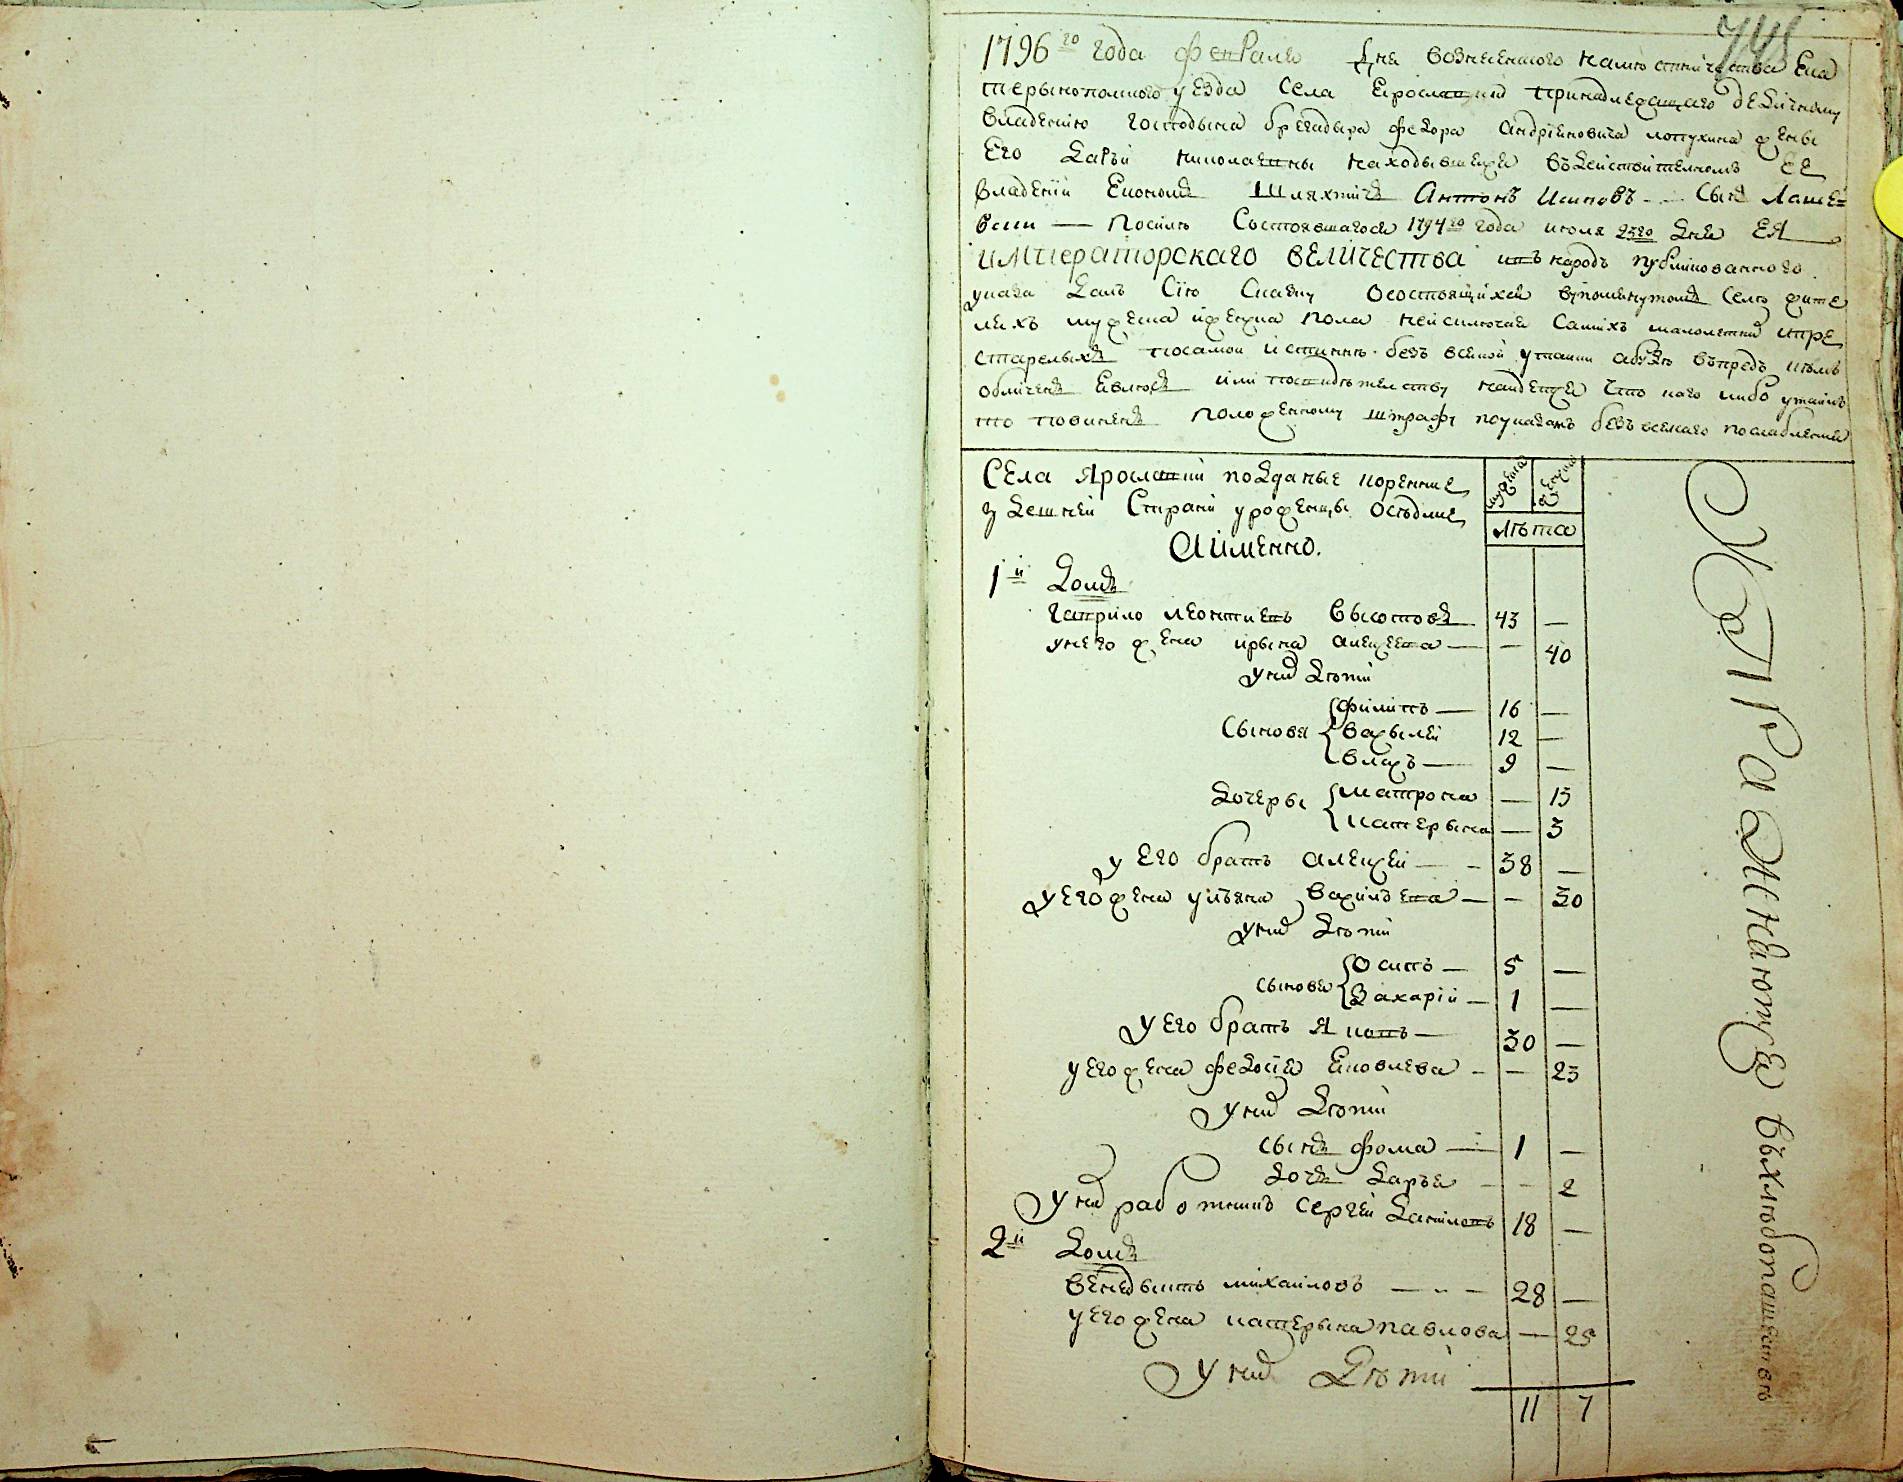 745
1796го года февраля Дня вознесенского наместничества Ека
терынополского уезда Села Ярославки принадлежащаго
владению господына брегадыра федора Андріяновича лопухина жены
Его Дарьи николаевны находывшейся въ действителномъ ЕЕ
владении Економъ Шляхтичъ Антонъ Осиповъ Сынъ
После Состоявшагося 1794го года июня 23го Дня ЕЯ
императорскаго величества въ народъ публикованного
указа Далъ Сію Скаску О состоящихся вупомянутомъ селе жите
ляхъ мужеска и женска пола не исключая самихъ малолетних и пре
старелыхъ по самой истинне безъ всякой утайки а буде въпредь кемъ
обличенъ явлюсь или по свидетелству найдется что кого либо утаилъ
то повиненъ положенному штрафу по указамъ безъ всякаго послабления
Села Ярославки подданые коренние
здешней Страни уроженцы Оседлие
Аименно.
мужеска женска
лета
1й Домъ
гаврило леонтиевъ Высотовъ 43 —
у него жена ирына алексеева — 40
у них дети
Сыновя филипъ — 16 —
василей 12 —
власъ — 9 —
Дочеры матрона — 15
катерына — 3
у Его братъ алексей — 38 —
у Его жена ульяна василъева — 30
у них дети
сыновя Осипъ — 5 —
Захарій — 1 —
у Его братъ Яковъ — 30 —
у Его жена федосия Яковлева — 23
у них дети
сынъ фома — 1 —
дочь Дарья — 2
у них работникъ Сергей Даниловъ 18 —
2й Домъ
венедыктъ михайловъ — 28 —
у Его жена катерына павлова — 25
у них Дети
11 7
упражняются въ хлебопашестве